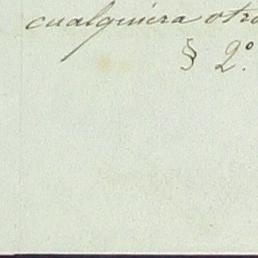 cualquiera otro
§ 2.º